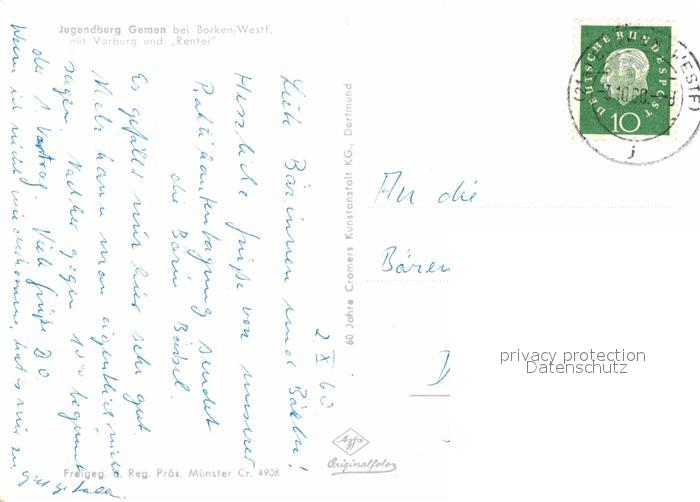 Jugendburg Gemen bei Borken/Westf.
mit Vorburg und „Rentei"
2. X. 60.
Liebe Bärinnen und Bären!
Herzliche Grüße von unserer
Praktikantentagung sendet
die Bärin Bärbel.
Es gefällt mir hier sehr gut.
Mehr kann man eigentlich nicht
sagen. Nachher gegen 10 beginnt
der 1. Vortrag. Viele Grüße D.O.
Wenn ich nicht wiederkomme, hat's mir zu
gut gefallen.
Freigeg. d. Reg. Präs. Münster Cr. 4908
60 Jahre Cramers Kunstanstalt KG., Dortmund
Agfa
Originalfoto
DEUTSCHE BUNDESPOST
10
(21
WESTF)
-3.10.60.--8
j
An die
Bären
privacy protection
Datenschutz